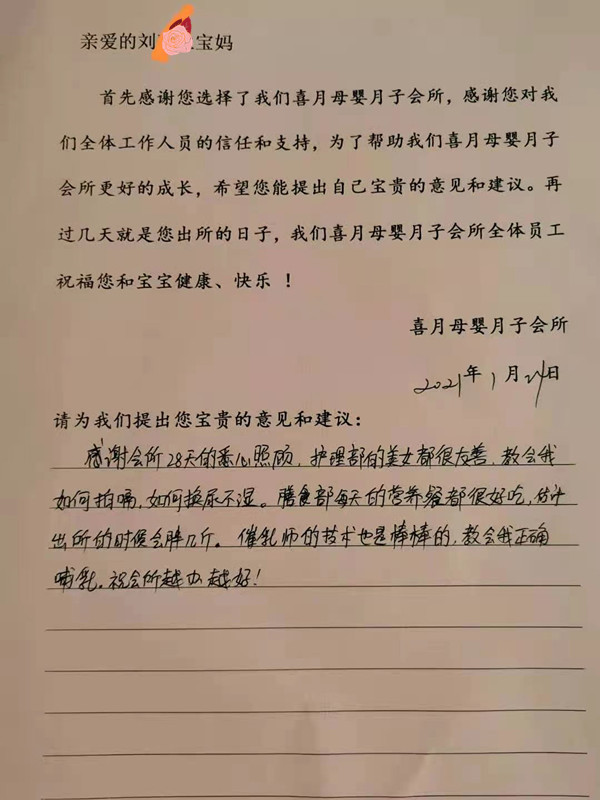 亲爱的刘宝妈
首先感谢您选择了我们喜月母婴月子会所，感谢您对我
们全体工作人员的信任和支持，为了帮助我们喜月母婴月子
会所更好的成长，希望您能提出自己宝贵的意见和建议。再
过几天就是您出所的日子，我们喜月母婴月子会所全体员工
祝福您和宝宝健康、快乐 ！
喜月母婴月子会所
2021年1月24日
请为我们提出您宝贵的意见和建议：
感谢会所28天的悉心照顾，护理部的美女都很友善，教会我
如何拍嗝，如何换尿不湿。膳食部每天的营养餐都很好吃，估计
出所的时候会胖几斤。催乳师的技术也是棒棒的，教会我正确
哺乳。祝会所越办越好！